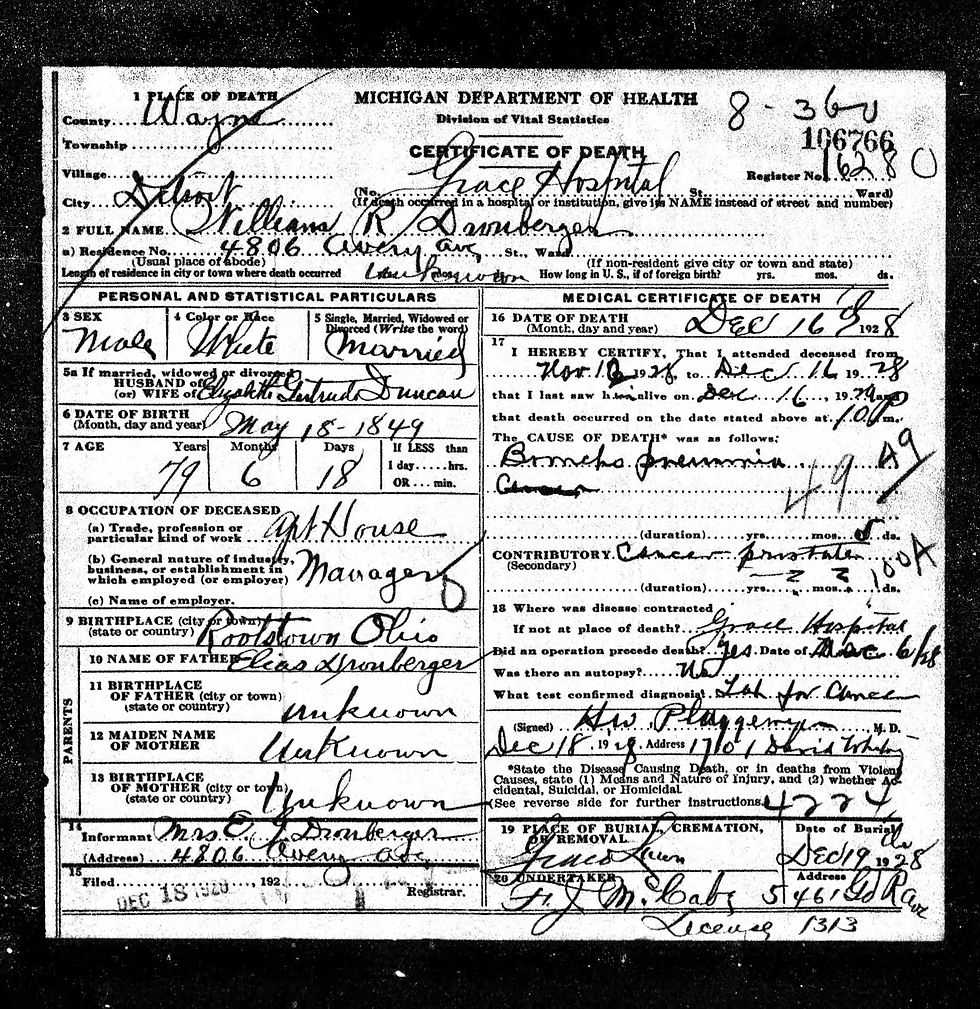 1 PLACE OF DEATH
County Wayne
Township
Village
City Detroit
MICHIGAN DEPARTMENT OF HEALTH
Division of Vital Statistics
CERTIFICATE OF DEATH
8-360
106766
Register No. 16280
(No. Grace Hospital St. Ward)
(If death occurred in a hospital or institution, give its NAME instead of street and number)
2 FULL NAME William R Dronberger
a) Residence No. 4806 Avery Ave St., Ward
(Usual place of abode) (If non-resident give city or town and state)
Length of residence in city or town where death occurred Unknown mos. ds. How long in U. S., if of foreign birth? yrs. mos. ds.
PERSONAL AND STATISTICAL PARTICULARS
3 SEX 4 Color or Race 5 Single, Married, Widowed or Divorced (Write the word)
Male White Married
5a If married, widowed or divorced
HUSBAND of
(or) WIFE of Elizabeth Gertrude Duncan
6 DATE OF BIRTH
(Month, day and year) May 18-1849
7 AGE Years Months Days If LESS than
1 day hrs.
79 6 18 OR min.
8 OCCUPATION OF DECEASED
(a) Trade, profession or
particular kind of work Apt House
(b) General nature of industry,
business, or establishment in
which employed (or employer) Manager
(c) Name of employer.
9 BIRTHPLACE (city or town)
(state or country) Rootstown Ohio
PARENTS
10 NAME OF FATHER Elias Dronberger
11 BIRTHPLACE
OF FATHER (city or town)
(state or country) Unknown
12 MAIDEN NAME
OF MOTHER Unknown
13 BIRTHPLACE
OF MOTHER (city or town)
(state or country) Unknown
14
Informant Mrs E G Dronberger
(Address) 4806 Avery Ave
15
Filed DEC 18 1928, 192
Registrar.
MEDICAL CERTIFICATE OF DEATH
16 DATE OF DEATH
(Month, day and year) Dec 16 1928
17
I HEREBY CERTIFY, That I attended deceased from
Nov 1928, to Dec 16 1928
that I last saw him alive on Dec 16, 19
that death occurred on the date stated above at 10 P m.
The CAUSE OF DEATH* was as follows:
Broncho pneumonia
49 49
(duration) yrs. mos. 5 ds.
CONTRIBUTORY Cancer prostate
(Secondary)
100A
(duration) yrs. 2 mos. ds.
18 Where was disease contracted
If not at place of death? Grace Hospital
Did an operation precede death? Yes Date of 6/28
Was there an autopsy? No
What test confirmed diagnosis? Lab for Cancer
(Signed) M. D.
Dec 18, 1928, Address 1701 David Whitney
*State the Disease Causing Death, or in deaths from Violent
Causes, state (1) Means and Nature of Injury, and (2) whether Ac-
cidental, Suicidal, or Homicidal.
(See reverse side for further instructions.
4224
19 PLACE OF BURIAL, CREMATION, Date of Burial
OR REMOVAL
Grand Lawn Dec 19 1928
20 UNDERTAKER Address
F. J. McCabe 5461 Gd Rave
License 1313